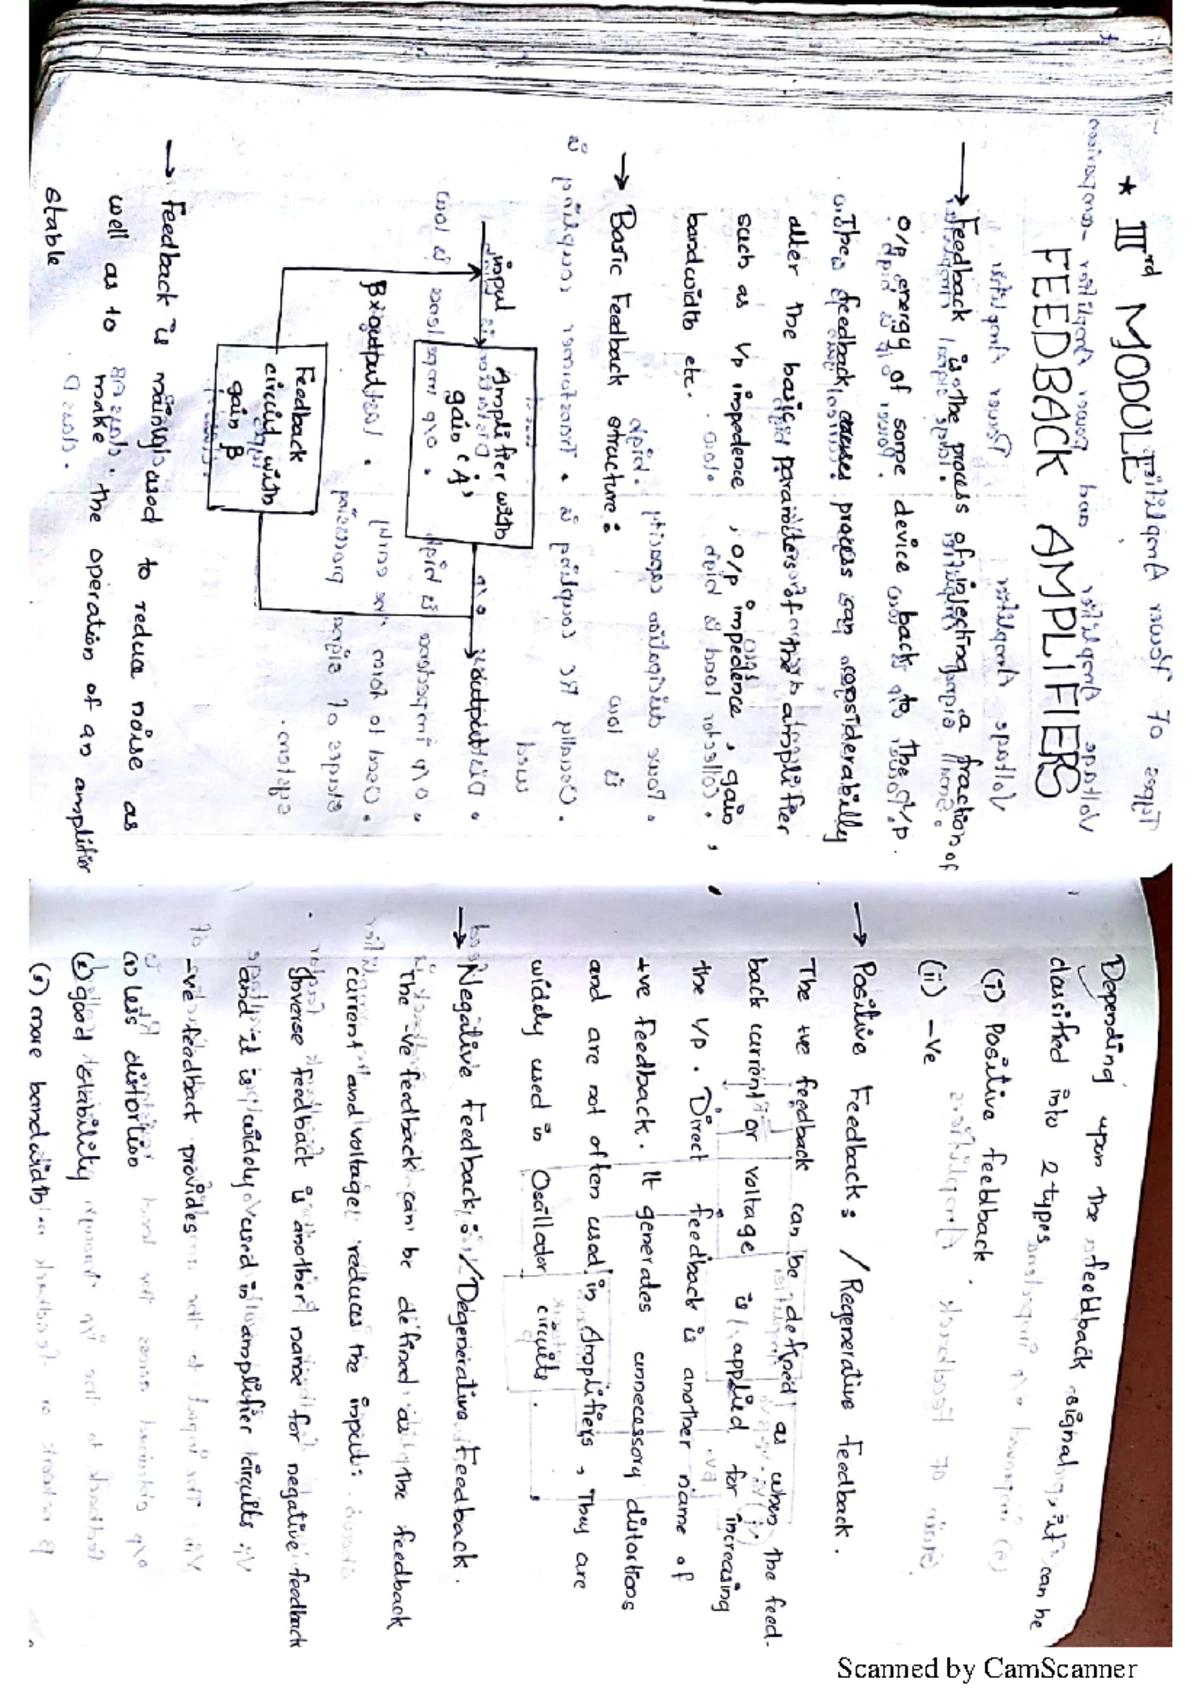 ★ IIIrd MODULE
FEEDBACK AMPLIFIERS
→ Feedback is the process of injecting a fraction of
o/p energy of some device back to the i/p.
The feedback process can considerabily
alter the basic parameters of the amplifier
such as i/p impedence, o/p impedence, gain,
bandwidth etc.
→ Basic Feedback structure:
input
Amplifier with
gain 'A'
output
β×output
Feedback
circuit with
gain β
→ Feedback is mainly used to reduce noise as
well as to make the operation of an amplifier
stable
Depending upon the feedback signal, it can be
classified into 2 types
(i) Positive feedback.
(ii) -Ve
→ Positive Feedback: / Regenerative Feedback.
The +ve feedback can be defined as when the feed-
back current or voltage is applied for increasing
the i/p. Direct feedback is another name of
+ve feedback. It generates unnecessary distortions
and are not often used in Amplifiers, They are
widely used in Oscillator circuits.
→ Negative Feedback: / Degenerative Feedback.
The -ve feedback can be defined as the feedback
current and voltage reduces the input.
Inverse feedback is another name for negative feedback
and it is widely used in amplifier circuits
-ve feedback provides
less distortion
good stability
more bandwidth
Scanned by CamScanner